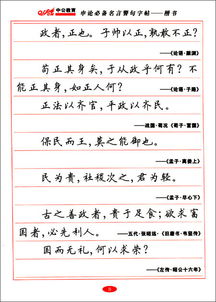 中公教育 申论必备名言警句字帖——楷书
政者，正也。子帅以正，孰敢不正？
——《论语·颜渊》
苟正其身矣，于从政乎何有？不
能正其身，如正人何？
——《论语·子路》
正法以齐官，平政以齐民。
——战国·荀况《荀子·富国》
保民而王，莫之能御也。
——《孟子·梁惠王上》
民为贵，社稷次之，君为轻。
——《孟子·尽心下》
古之善政者，贵于足食；欲求富
国者，必先利人。
——五代·张昭远《旧唐书·韦坚传》
国而无礼，何以求荣？
——《左传·昭公十六年》